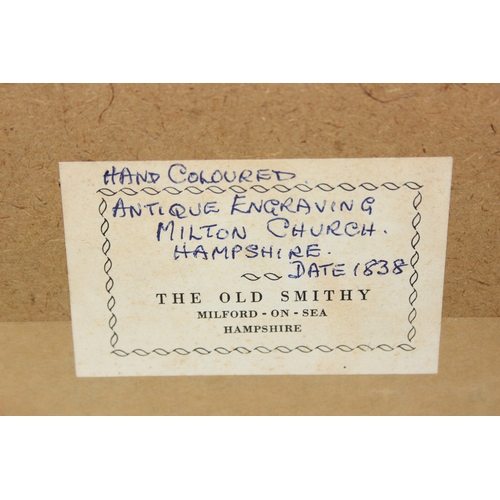 HAND COLOURED
ANTIQUE ENGRAVING
MILTON CHURCH.
HAMPSHIRE.
DATE 1838
THE OLD SMITHY
MILFORD - ON - SEA
HAMPSHIRE